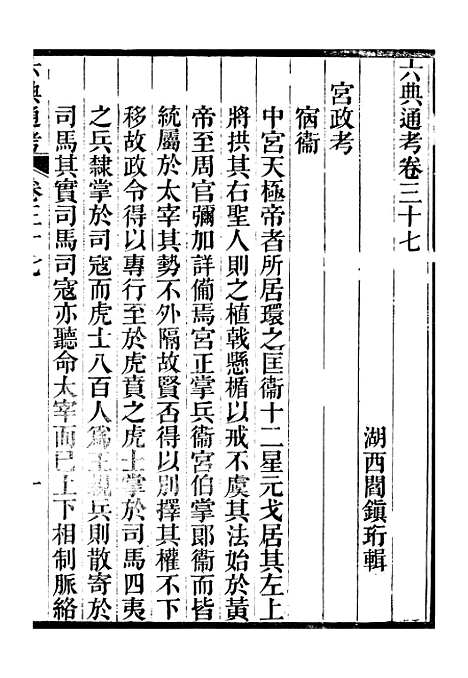 六典通考卷三十七
湖西閻鎮珩輯
宮政考
宿衞
中宮天極帝者所居環之匡衞十二星元戈居其左上
將拱其右聖人則之植戟懸楯以戒不虞其法始於黃
帝至周官彌加詳備焉宮正掌兵衞宮伯掌郎衞而皆
統屬於太宰其勢不外隔故賢否得以別擇其權不下
移故政令得以專行至於虎賁之虎士掌於司馬四夷
之兵隸掌於司寇而虎士八百人為王親兵則散寄於
司馬其實司馬司寇亦聽命太宰而已上下相制脈絡
六典通考
卷三十七
一